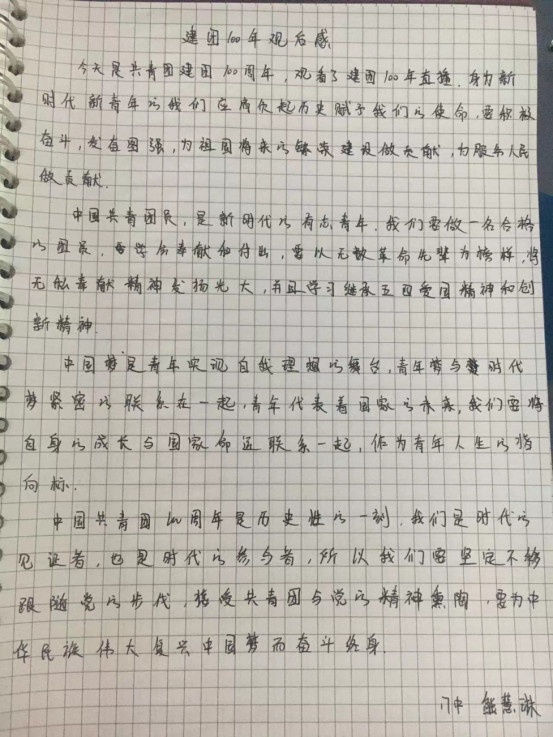 建团100年观后感
今天是共青团建团100周年，观看了建团100年直播，身为新
时代新青年的我们应肩负起历史赋予我们的使命，要你
奋斗，发奋图强，为祖国将来的繁荣建设做贡献，为服务人民
做贡献.
中国共青团员，是新时代的有志青年，我们要做一名合格
的团员，要学会奉献和付出，要以无数革命先辈为榜样，将
无私奉献精神发扬光大，并且学习继承五四爱国精神和创
新精神.
中国梦是青年实现自我理想的舞台，青年梦与时代
梦紧密的联系在一起，青年代表着国家的未来，我们要将
自身的成长与国家命运联系一起，作为青年人生的指
向标.
中国共青团100周年是历史性的一刻，我们是时代的
见证者，也是时代的参与者，所以我们要坚定不移
跟随党的步伐，接受共青团与党的精神熏陶，要为中
华民族伟大复兴中国梦而奋斗终身.
熊慧琳